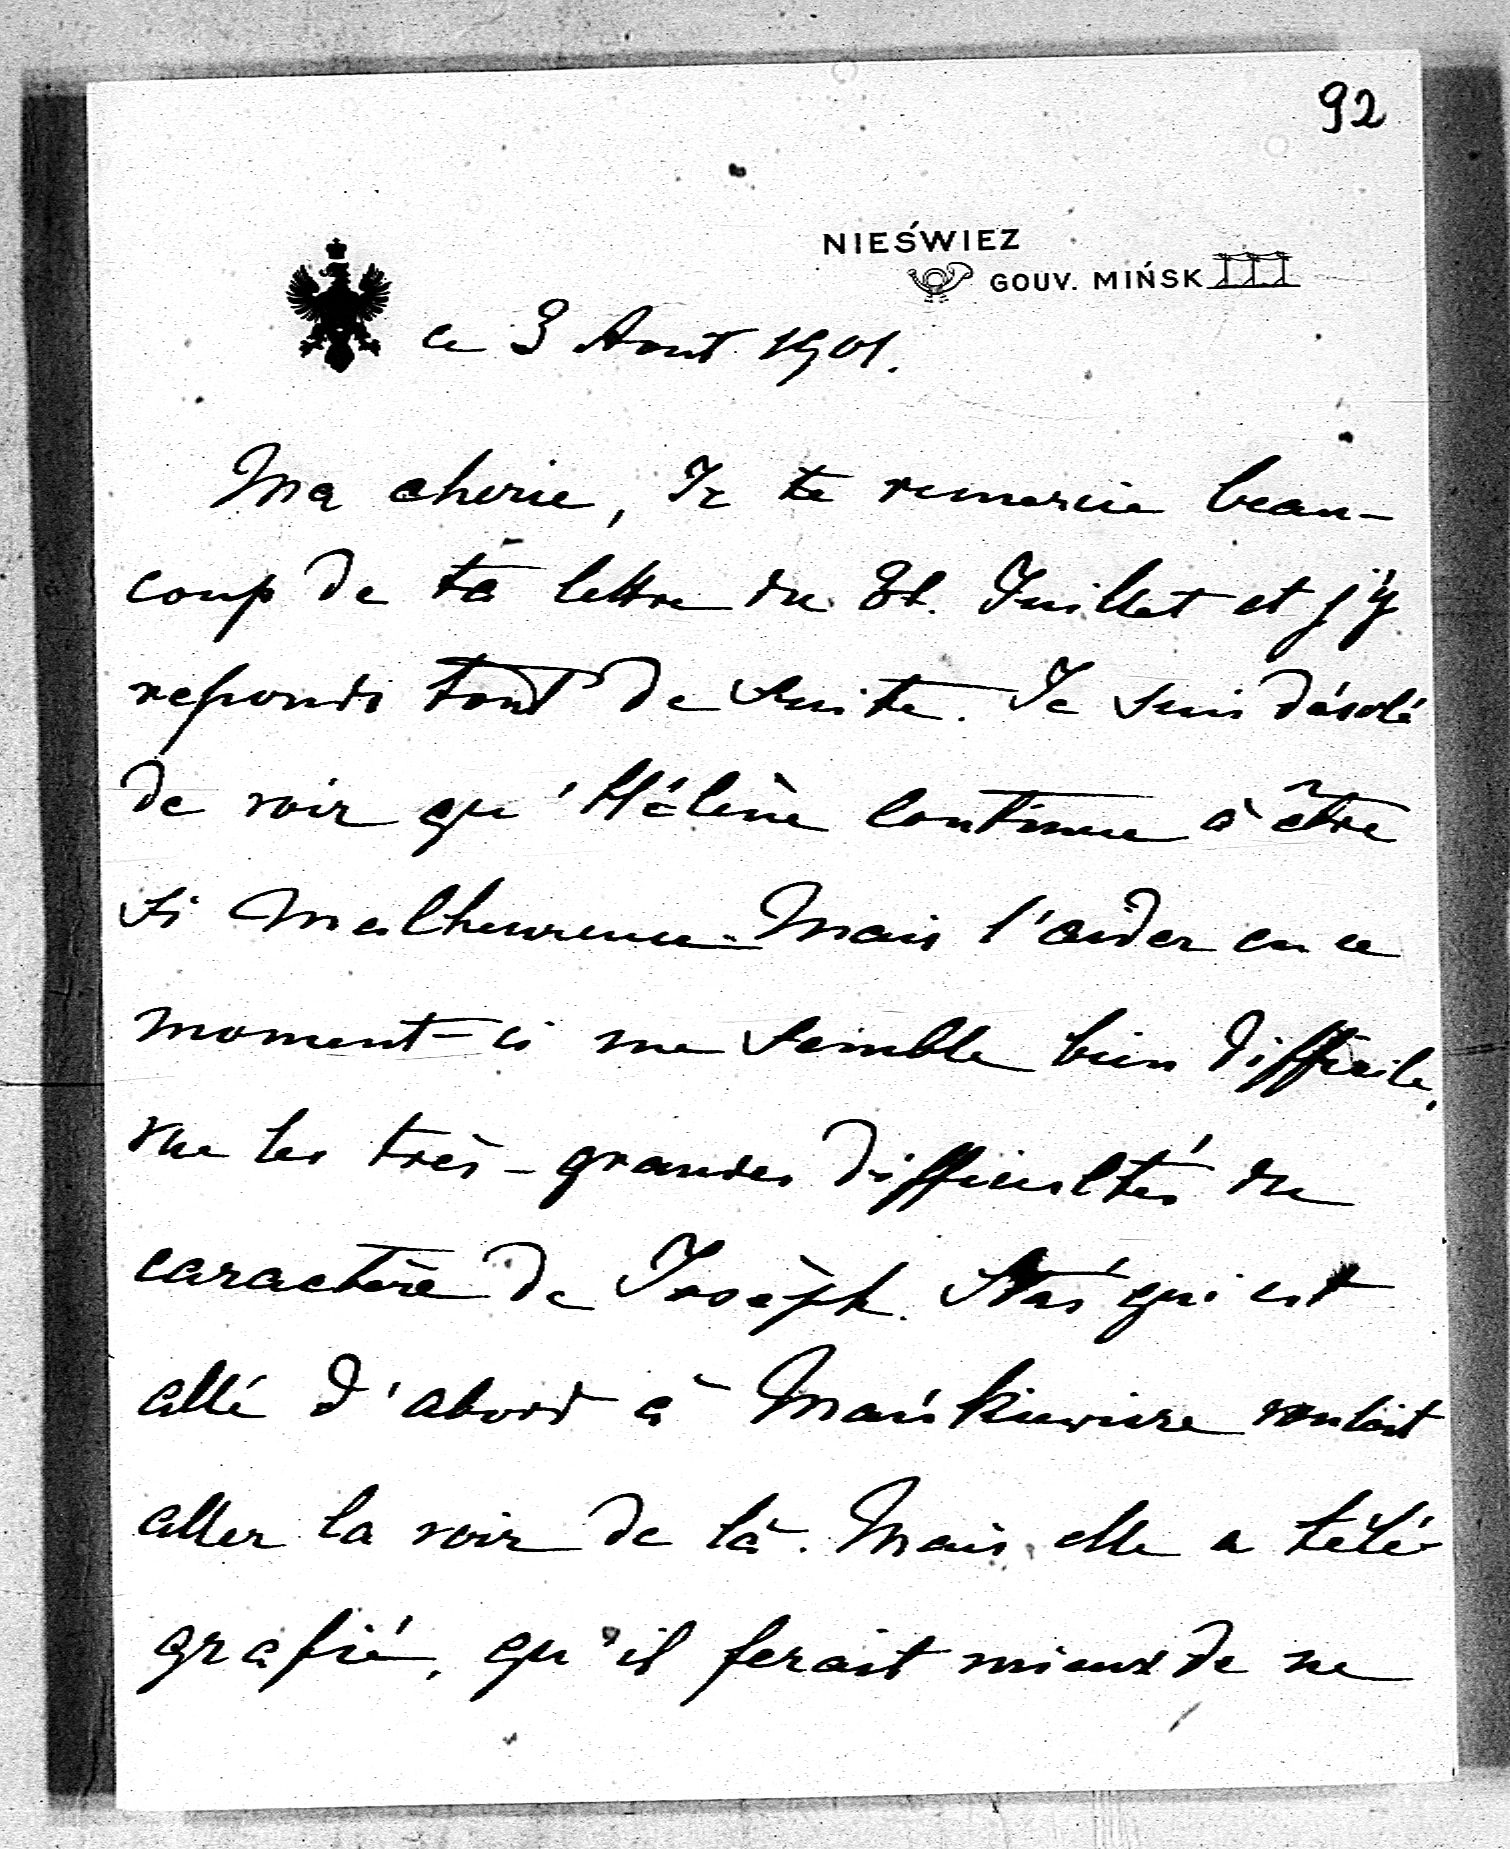 92
NIEŚWIEZ
GOUV. MIŃSK
ce 3 Aout 1901.
Ma cherie, Je te remercie beau-
coup de ta lettre du 31. Juillet et j'y
reponds tout de suite. Je suis désolé
de voir qu'Hélène continue à être
si malheureuse. Mais l'aider en ce
moment-ci me semble bien difficile,
vue les très-grandes difficultés du
caractère de Joseph. Staś qui est
allé d'abord à Mańkiewicze voulait
aller la voir de là. Mais elle a télé-
grafié, qu'il ferait mieux de ne